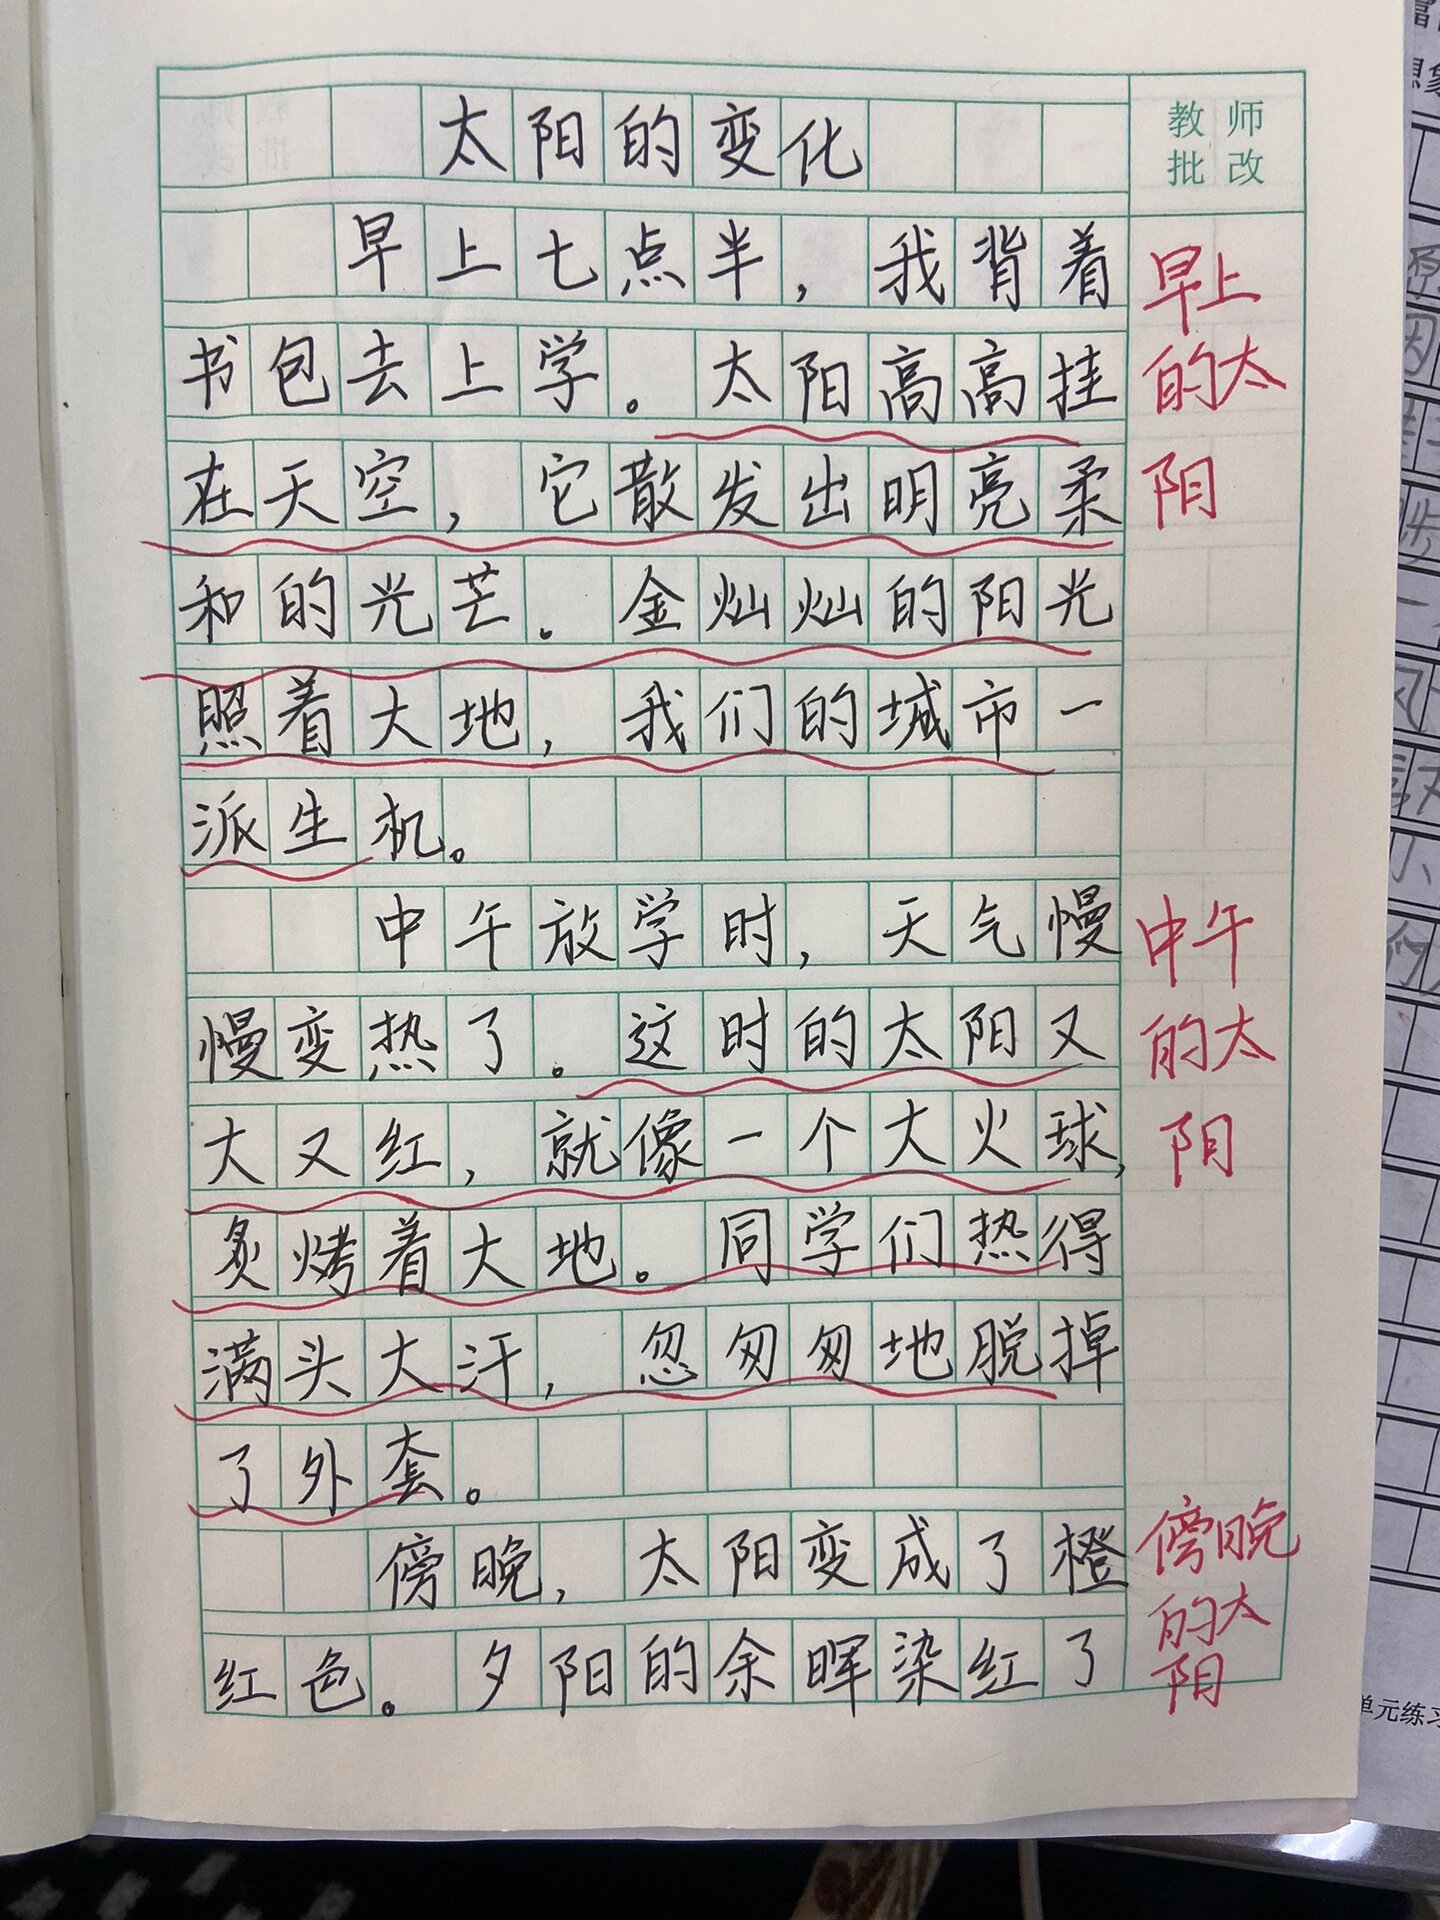 教师
批改
太阳的变化
早上七点半，我背着
书包去上学。太阳高高挂
在天空，它散发出明亮柔
和的光芒。金灿灿的阳光
照着大地，我们的城市一
派生机。
中午放学时，天气慢
慢变热了。这时的太阳又
大又红，就像一个大火球，
炙烤着大地。同学们热得
满头大汗，忽匆匆地脱掉
了外套。
傍晚，太阳变成了橙
红色。夕阳的余晖染红了
早上
的太
阳
中午
的太
阳
傍晚
的太
阳
单元练习